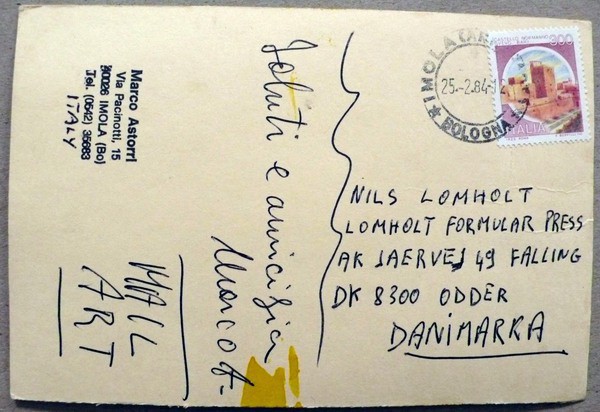 Marco Astorri
Via Pacinotti, 15
40026 IMOLA (Bo)
Tel. (0542) 35683
ITALY
Saluti e amicizia
Marco A.
MAIL
ART
IMOLA
25.-2.84-12
★ BOLOGNA ★
300
ITALIA
NILS LOMHOLT
LOMHOLT FORMULAR PRESS
AKJAERVEJ 49 FALLING
DK 8300 ODDER
DANIMARKA